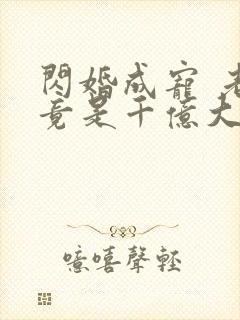 閃婚成寵 老
竟是千億大
噫嘻聲輕